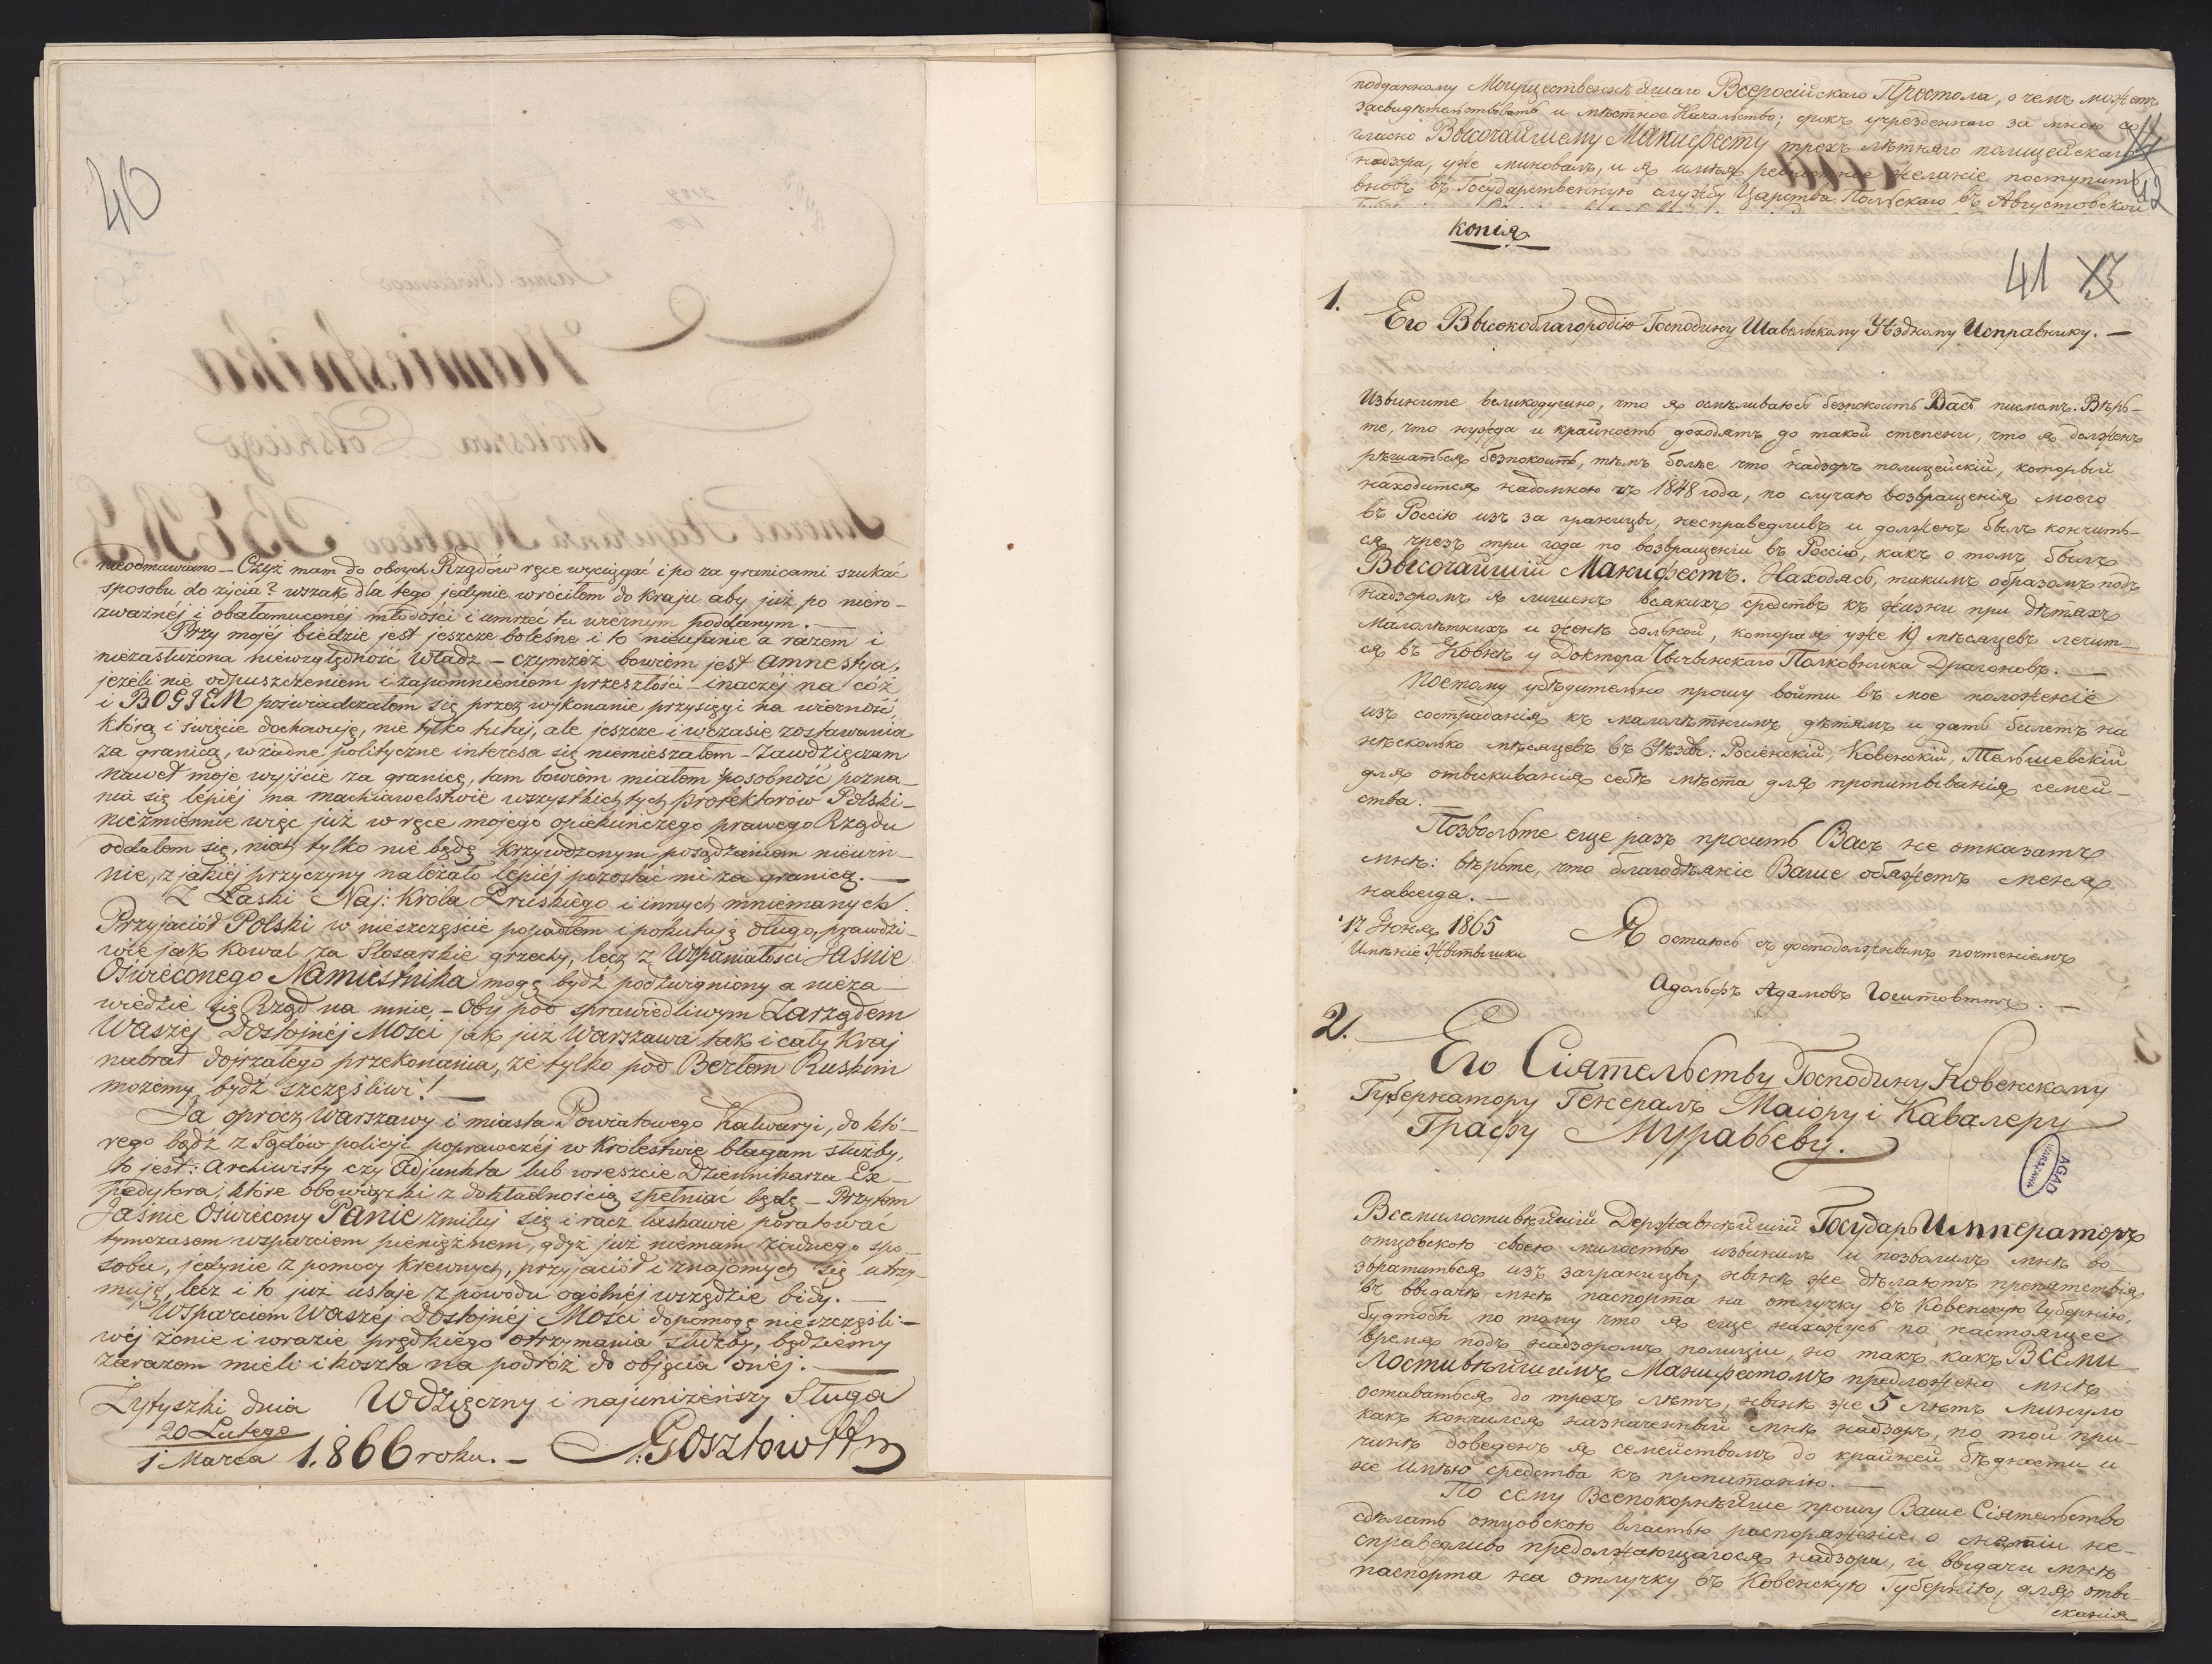 40
nieodmawiano — Czyż mam do obcych Rządów ręce wyciągać i po za granicami szukać
sposobu do życia? wszak dla tego jedynie wróciłem do kraju aby już po niero-
zważnéj i obałamuconéj młodości i umrzeć tu wiernym poddanym. —
Przy mojéj biedzie jest jeszcze boleśne i to nieufanie a razem i
niezasłużona niewzględność Władz — czymże bowiem jest amnestya,
jeżeli nie odpuszczeniem i zapomnieniem przeszłości — inaczéj na cóż
i BOGIEM poświadczałem się przez wykonanie przysięgi na wierność,
którą i święcie dochowuję, nie tylko tutaj, ale jeszcze i w czasie zostawania
za granicą, w żadne polityczne interesa się niemieszałem — Zawdzięczam
nawet moje wyjście za granicę, tam bowiem miałem sposobność pozna-
nia się lépiéj na machiawelstwie wszystkich tych protektorów Polski —
niezmiennie więc już w ręce mojego opiekuńczego prawego Rządu
oddałem się, niech tylko nie będę krzywdzonym posądzaniem niewin-
nie, z jakiéj przyczyny należało lépiéj pozostać mi za granicą. —
Z Łaski Naj: Króla Pruskiego i innych mniemanych
Przyjaciół Polski w nieszczęście popadłem i pokutuję długo, prawdzi-
wie jak Kowal za Slosarskie grzechy, lecz z Wspaniałości Jaśnie
Oświeconego Namiestnika mogę bydź podźwigniony a nieza-
wiedzie się Rząd na mnie. — Oby pod sprawiedliwym Zarządem
Waszéj Dostojnéj Mości jak już Warszawa tak i cały Kraj
nabrał dojrzałego przekonania, że tylko pod Berłem Ruskim
możemy bydź szczęśliwi! —
Ja oprócz Warszawy i miasta Powiatowego Kalwaryi, do któ-
rego bądź z Sądów policyi poprawczéj w Królestwie błagam służby,
to jest: Archiwisty czy Adjunkta lub wreszcie Dziennikarza Ex-
pedytora, które obowiązki z dokładnością spełniać będę — Przytem
Jaśnie Oświecony Panie zmiłuj się i racz łaskawie poratować
tymczasem wsparciem pieniężnem, gdyż już niemam żadnego spo-
sobu, jedynie z pomocy krewnych, przyjaciół i znajomych się utrzy-
muję, lecz i to już ustaje z powodu ogólnéj wszędzie bidy. —
Wsparciem Waszéj Dostojnéj Mości dopomogę nieszczęśli-
wéj żonie i w razie prędkiego otrzymania służby, będziemy
zarazem mieli i koszta na podróż do objęcia onéj. —
Żytyszki dnia Wdzięczny i najuniżeńszy Sługa
20 Lutego
1 Marca 1.866 roku. — A. Gosztowtt
подданному Могущественнѣйшаго Всеросійскаго Престола, о чемъ можетъ
засвидѣтельствовать и мѣстное Начальство; срокъ учрежденнаго за мною со
гласно Высочайшему Манифесту трехъ лѣтняго полицейскаго
надзора, уже миновалъ, и я имѣя ревностное желаніе поступить
вновь въ Государственную службу Царства Польскаго въ Августовской
42
копія.
41
1.
Его Высокоблагородію Господину Шавельскому Уѣздному Исправнику. —
Извините великодушно, что я осмѣливаюсь безпокоить Васъ писмомъ. Вѣрь-
те, что нужда и крайность доходятъ до такой степени, что я долженъ
рѣшаться безпокоить, тѣмъ болѣе что надзоръ полицейскій, который
находится надомною съ 1848 года, по случаю возвращенія моего
въ Россію изъ за границы, несправедливъ и долженъ былъ кончить-
ся чрезъ три года по возвращеніи въ Россію, какъ о томъ былъ
Высочайшій Манифестъ. Находясь, такимъ образомъ подъ
надзоромъ я лишенъ всякихъ средствъ къ жизни при дѣтяхъ
малолѣтнихъ и женѣ больной, которая уже 19 мѣсяцевъ лечит-
ся въ Ковнѣ у Доктора Полковника Драгоновъ. —
Поетому убѣдительно прошу войти въ мое положеніе
изъ состраданія къ малолѣтнимъ дѣтямъ и дать билетъ на
нѣсколько мѣсяцевъ въ Уѣзды: Росіенскій, Ковенскій, Тельшевскій
для отыскиванія себѣ мѣста для пропитыванія семей-
ства. —
Позвольте еще разъ просить Васъ не отказать
мнѣ: вѣрьте, что благодѣяніе Ваше обяжетъ меня
навсегда. —
17 Іюня 1865 Я остаюсь съ достодолжнымъ почтеніемъ
Имѣніе Жытышки
Адольфъ Адамовъ Гоштовттъ. —
2.
Его Сіятельству Господину Ковенскому
Губернатору Генералъ Маіору і Кавалеру
Графу Муравьеву.
AGAD
WARSZAWA
Всемилостивѣйшій Державнѣйшій Государь Императоръ
отцовскою своею милостью извинилъ и позволилъ мнѣ во-
звратиться изъ заграницы, нынѣ же дѣлаютъ препятствія
въ выдачѣ мнѣ паспорта на отлучку въ Ковенскую Губернію,
будтобы по тому что я еще нахожусь по настоящее
время подъ надзоромъ полиціи, но такъ какъ Всеми
лостивѣйшимъ Манифестомъ предложено мнѣ
оставаться до трехъ лѣтъ, нынѣ же 5 лѣтъ минуло
какъ кончился назначенный мнѣ надзоръ, по той при-
чинѣ доведенъ я семействомъ до крайней бѣдности и
не имѣю средства къ пропитанію. —
По сему Всепокорнѣйше прошу Ваше Сіятельство
сдѣлать отцовскою властью распоряженіе о снятіи не-
справедливо предолжающагося надзора, и выдачи мнѣ
паспорта на отлучку въ Ковенскую Губернію, для оты-
сканія